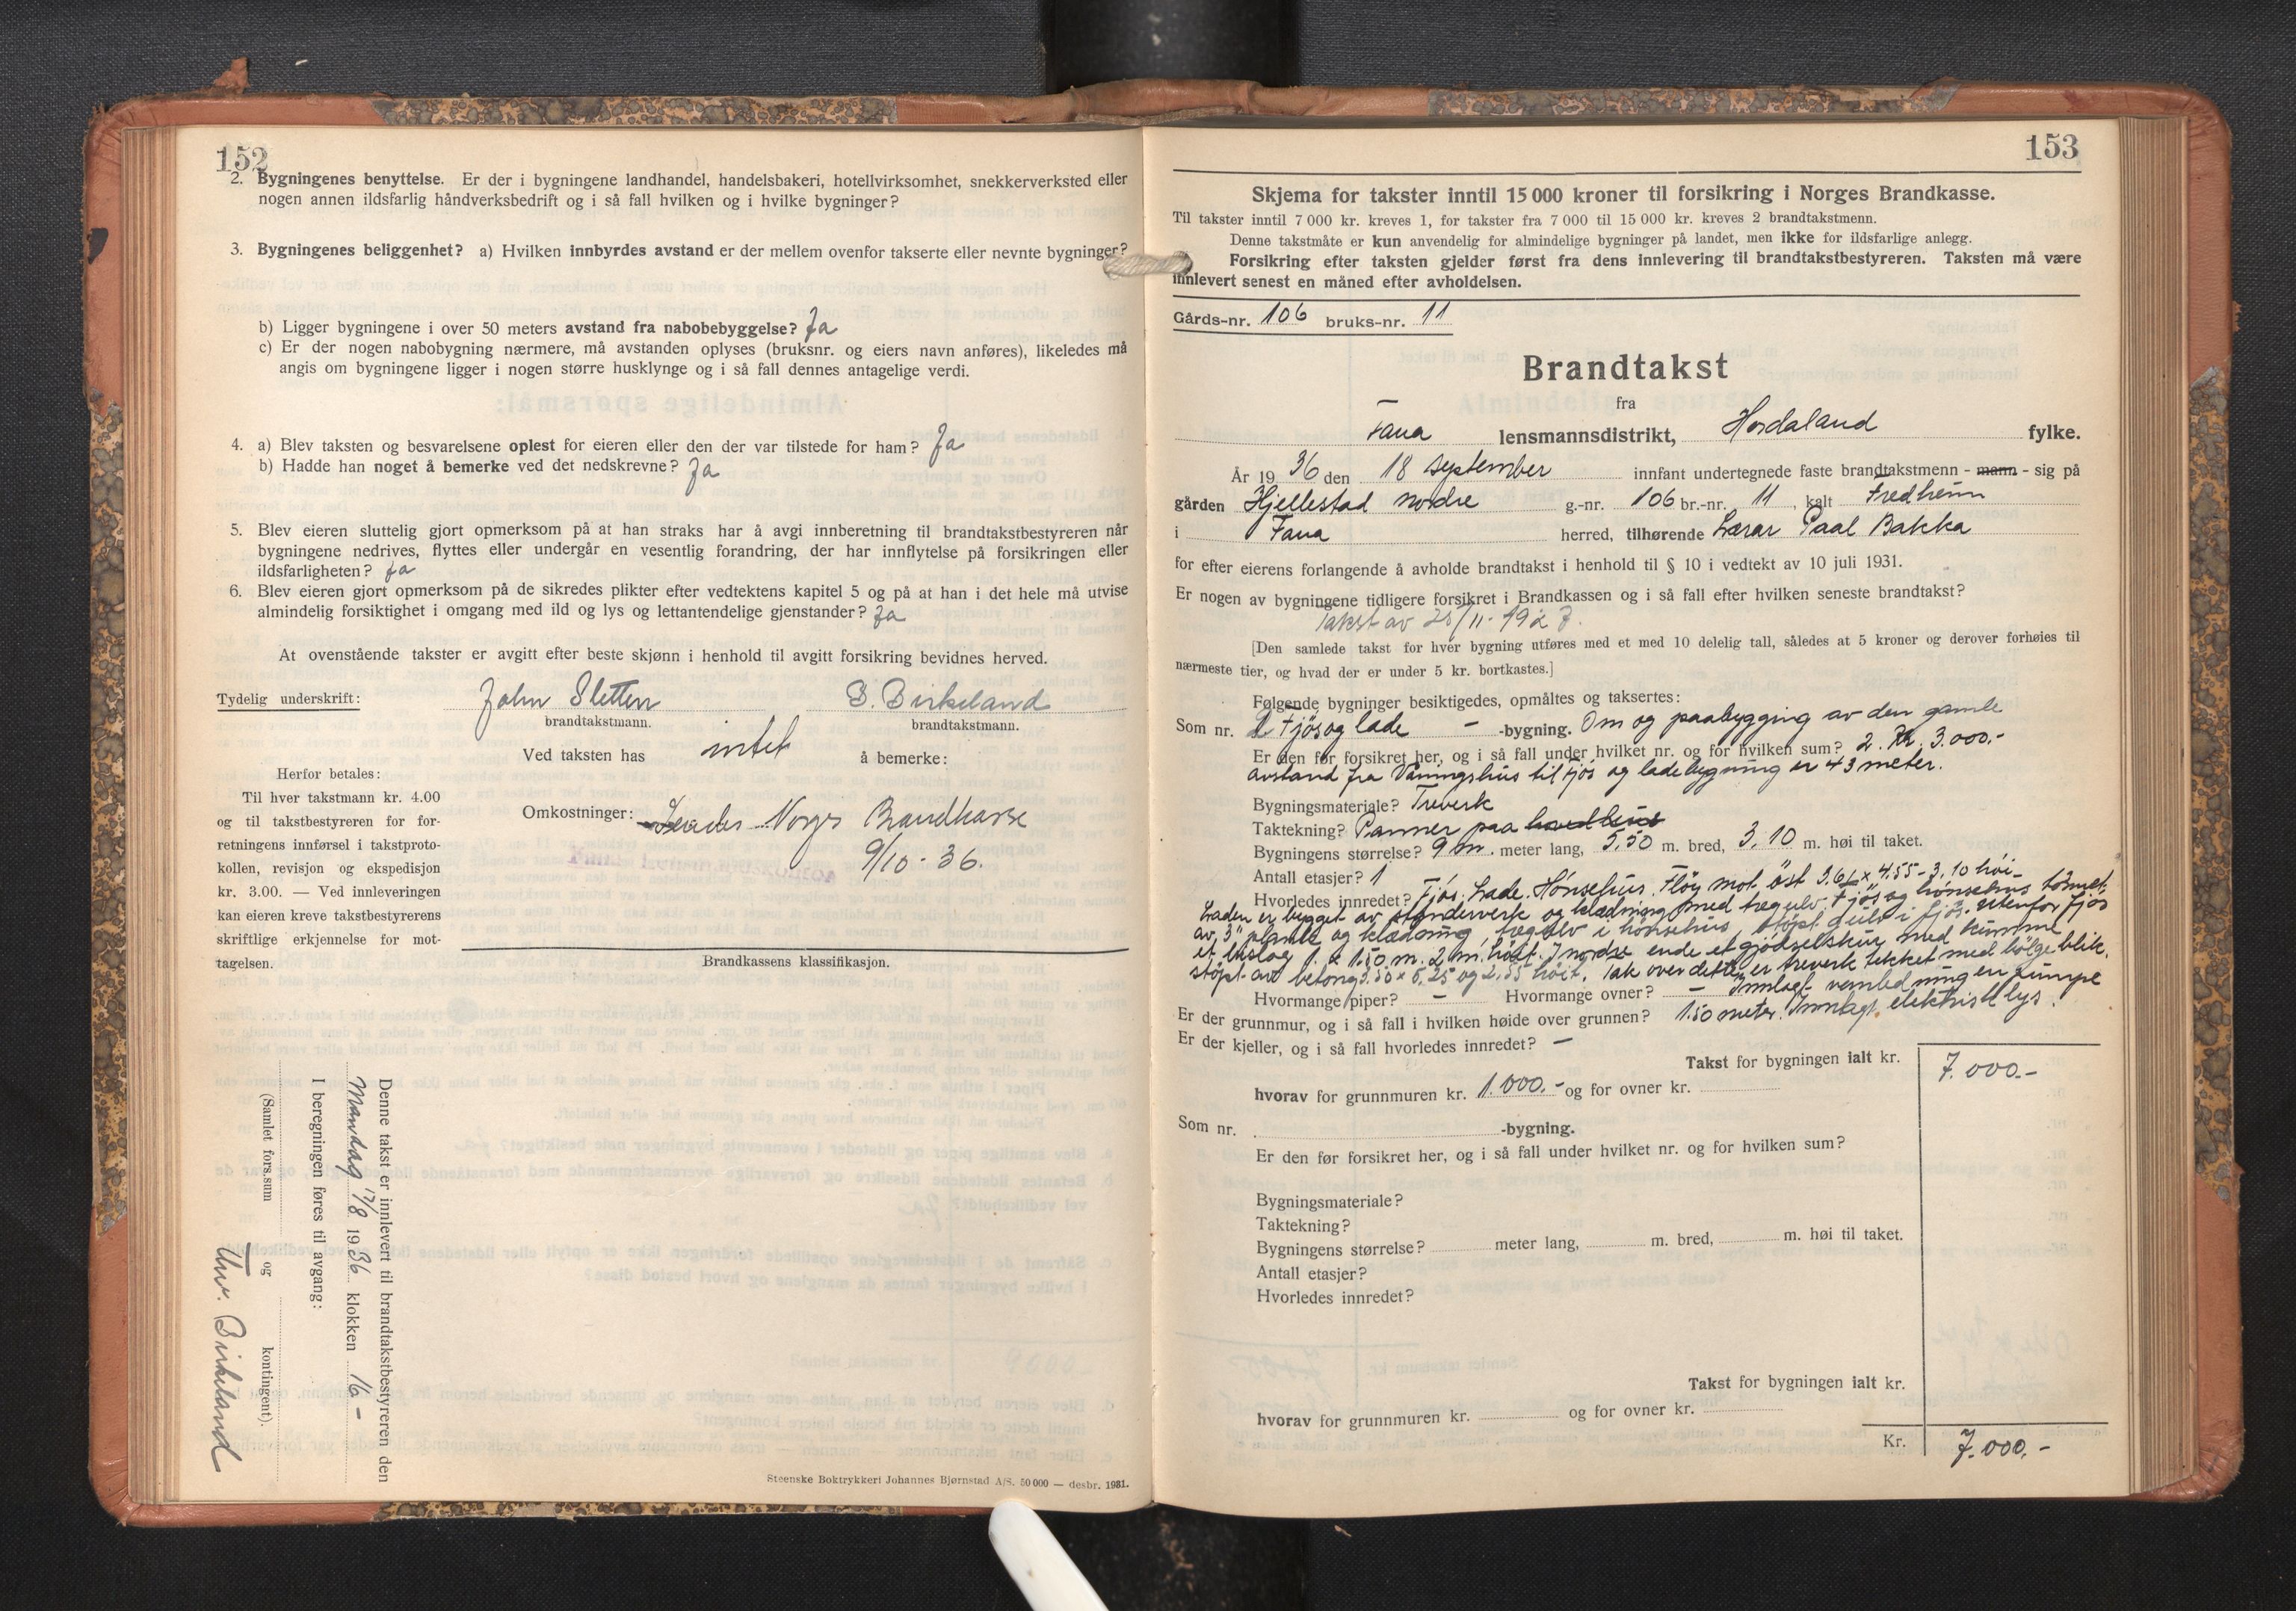 152
2. Bygningenes benyttelse. Er der i bygningene landhandel, handelsbakeri, hotellvirksomhet, snekkerverksted eller
nogen annen ildsfarlig håndverksbedrift og i så fall hvilken og i hvilke bygninger?
3. Bygningenes beliggenhet? a) Hvilken innbyrdes avstand er der mellem ovenfor takserte eller nevnte bygninger?
b) Ligger bygningene i over 50 meters avstand fra nabobebyggelse? Ja
c) Er der nogen nabobygning nærmere, må avstanden oplyses (bruksnr. og eiers navn anføres), likeledes må
angis om bygningene ligger i nogen større husklynge og i så fall dennes antagelige verdi.
4. a) Blev taksten og besvarelsene oplest for eieren eller den der var tilstede for ham? Ja
b) Hadde han noget å bemerke ved det nedskrevne? Ja
5. Blev eieren sluttelig gjort opmerksom på at han straks har å avgi innberetning til brandtakstbestyreren når
bygningene nedrives, flyttes eller undergår en vesentlig forandring, der har innflytelse på forsikringen eller
ildsfarligheten? Ja
6. Blev eieren gjort opmerksom på de sikredes plikter efter vedtektens kapitel 5 og på at han i det hele må utvise
almindelig forsiktighet i omgang med ild og lys og lettantendelige gjenstander? Ja
At ovenstående takster er avgitt efter beste skjønn i henhold til avgitt forsikring bevidnes herved.
Tydelig underskrift: John Sletten B. Birkeland
brandtakstmann. brandtakstmann.
Ved taksten has intet å bemerke:
Herfor betales:
Til hver takstmann kr. 4.00
og til takstbestyreren for for-
retningens innførsel i takstproto-
kollen, revisjon og ekspedisjon
kr. 3.00. — Ved innleveringen
kan eieren kreve takstbestyrerens
skriftlige erkjennelse for mot-
tagelsen.
Omkostninger: Norges Brandkasse
9/10-36.
Brandkassens klassifikasjon.
Denne takst er innlevert til brandtakstbestyreren den
Mandag 17/8 1936 klokken 16 -
I beregningen føres til avgang:
(Samlet fors.sum og kontingent).
Birkeland
Steenske Boktrykkeri Johannes Bjørnstad A/S. 50 000 — desbr. 1931.
153
Skjema for takster inntil 15 000 kroner til forsikring i Norges Brandkasse.
Til takster inntil 7 000 kr. kreves 1, for takster fra 7 000 til 15 000 kr. kreves 2 brandtakstmenn.
Denne takstmåte er kun anvendelig for almindelige bygninger på landet, men ikke for ildsfarlige anlegg.
Forsikring efter taksten gjelder først fra dens innlevering til brandtakstbestyreren. Taksten må være
innlevert senest en måned efter avholdelsen.
Gårds-nr. 106 bruks-nr. 11
Brandtakst
fra
Fana lensmannsdistrikt, Hordaland fylke.
År 1936 den 18 september innfant undertegnede faste brandtakstmenn - mann - sig på
gården Hjellestad nordre g.-nr. 106 br.-nr. 11, kalt Fredheim
i Fana herred, tilhørende Lærar Paal Bakka
for efter eierens forlangende å avholde brandtakst i henhold til § 10 i vedtekt av 10 juli 1931.
Er nogen av bygningene tidligere forsikret i Brandkassen og i så fall efter hvilken seneste brandtakst?
Takst av 25/11-1927.
[Den samlede takst for hver bygning utføres med et med 10 delelig tall, således at 5 kroner og derover forhøies til
nærmeste tier, og hvad der er under 5 kr. bortkastes.]
Følgende bygninger besiktigedes, opmåltes og taksertes:
Som nr. 2 Fjös og lade - -bygning. Om og paabygging av den gamle
Er den før forsikret her, og i så fall under hvilket nr. og for hvilken sum? 2. Kr. 3.000.-
avstand fra Vaaningshus til fjös og ladebygning er 43 meter.
Bygningsmateriale? Treverk
Taktekning? Panner paa
Bygningens størrelse? 9 m. meter lang, 5,50 m. bred, 3,10 m. høi til taket.
Antall etasjer? 1
Hvorledes innredet? Fjös. Lade. Hönsehus. Flöy mot öst 3.65 x 4.55 - 3.10 höi-
Laden er bygget av standerverk og klædning med tregulv. Fjös og hönsehus tömret
av 3" planke og klædning, tregulv i hönsehus, stöpt gulv i fjös. Utenfor fjös
et bislag 1. x 1.50 m. 2 m. höit. I nordre ende et gjödselskur med kumme
stöpt av betong 3.50 x 5.25 og 2.55 höit. Tak over dette er treverk tekket med bölgeblik.
Hvormange piper? - Hvormange ovner? - Innlagt vannledning en pumpe
Er der grunnmur, og i så fall i hvilken høide over grunnen? 1.50 meter. Innlagt elektrisk lys.
Er der kjeller, og i så fall hvorledes innredet? -
Takst for bygningen ialt kr. 7.000.-
hvorav for grunnmuren kr. 1.000.- og for ovner kr.
Som nr. -bygning.
Er den før forsikret her, og i så fall under hvilket nr. og for hvilken sum?
Bygningsmateriale?
Taktekning?
Bygningens størrelse? meter lang, m. bred, m. høi til taket.
Antall etasjer?
Hvorledes innredet?
Takst for bygningen ialt kr.
hvorav for grunnmuren kr. og for ovner kr.
Kr. 7.000.-